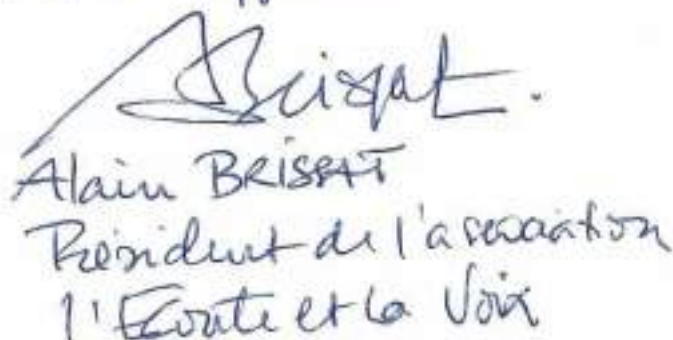 Alain BRISSAT
Président de l'association
l'Ecoute et la Voix